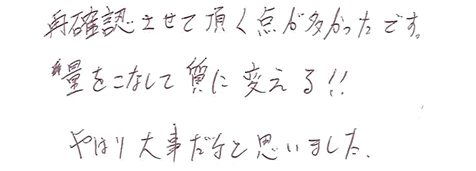 再確認させて頂く点が多かったです。
量をこなして質に変える!!
やはり大事だなと思いました.